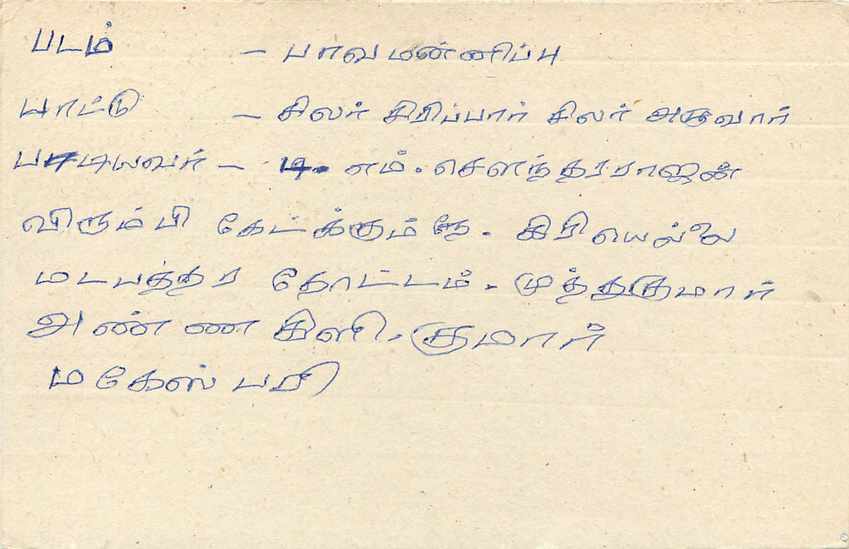 படம் - பாவமன்னிப்பு
பாட்டு - சிலர் சிரிப்பார் சிலர் அழுவார்
பாடியவர் - டி. எம். சௌந்தரராஜன்
விரும்பி கேட்க்கும்
தோட்டம். முத்துகுமார்
அண்ணகிளி. குமார்
மகேஸ்